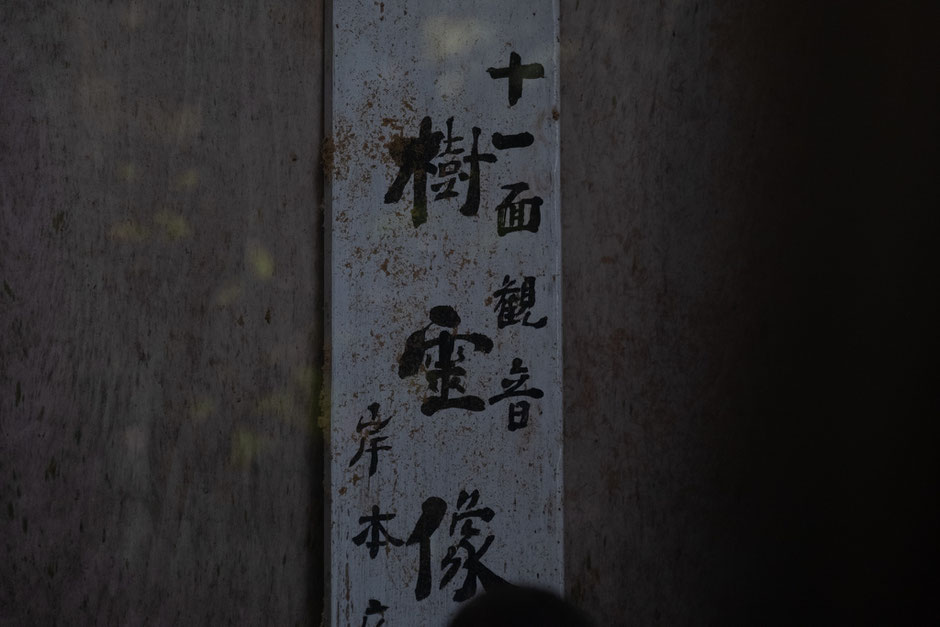 十一面観音
樹霊像
岸本